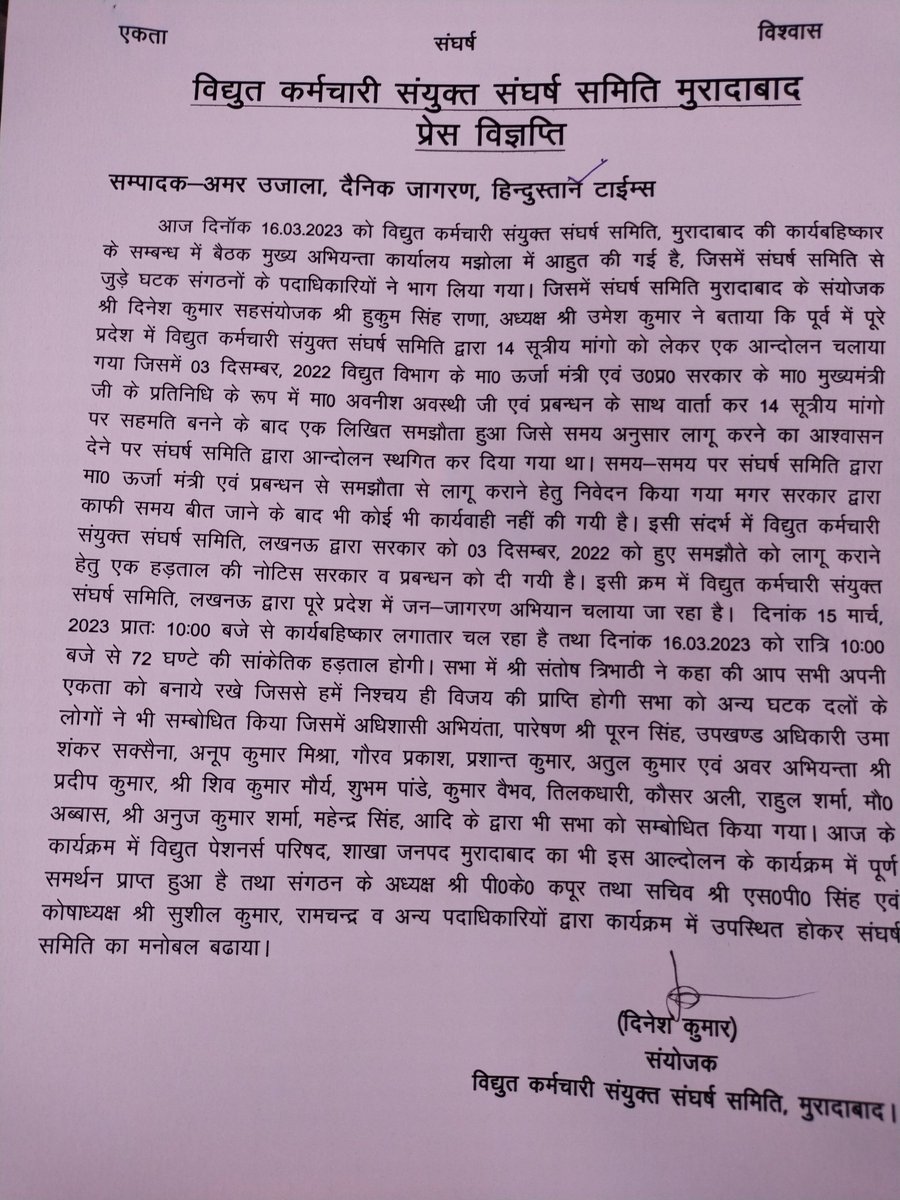 एकता संघर्ष विश्वास
विद्युत कर्मचारी संयुक्त संघर्ष समिति मुरादाबाद
प्रेस विज्ञप्ति
सम्पादक–अमर उजाला, दैनिक जागरण, हिन्दुस्तान टाईम्स
आज दिनॉक 16.03.2023 को विद्युत कर्मचारी संयुक्त संघर्ष समिति, मुरादाबाद की कार्यबहिष्कार
के सम्बन्ध में बैठक मुख्य अभियन्ता कार्यालय मझोला में आहुत की गई है, जिसमें संघर्ष समिति से
जुड़े घटक संगठनों के पदाधिकारियों ने भाग लिया गया। जिसमें संघर्ष समिति मुरादाबाद के संयोजक
श्री दिनेश कुमार सहसंयोजक श्री हुकुम सिंह राणा, अध्यक्ष श्री उमेश कुमार ने बताया कि पूर्व में पूरे
प्रदेश में विद्युत कर्मचारी संयुक्त संघर्ष समिति द्वारा 14 सूत्रीय मांगो को लेकर एक आन्दोलन चलाया
गया जिसमें 03 दिसम्बर, 2022 विद्युत विभाग के मा0 ऊर्जा मंत्री एवं उ0प्र0 सरकार के मा0 मुख्यमंत्री
जी के प्रतिनिधि के रूप में मा0 अवनीश अवस्थी जी एवं प्रबन्धन के साथ वार्ता कर 14 सूत्रीय मांगो
पर सहमति बनने के बाद एक लिखित समझौता हुआ जिसे समय अनुसार लागू करने का आश्वासन
देने पर संघर्ष समिति द्वारा आन्दोलन स्थगित कर दिया गया था। समय–समय पर संघर्ष समिति द्वारा
मा0 ऊर्जा मंत्री एवं प्रबन्धन से समझौता से लागू कराने हेतु निवेदन किया गया मगर सरकार द्वारा
काफी समय बीत जाने के बाद भी कोई भी कार्यवाही नहीं की गयी है। इसी संदर्भ में विद्युत कर्मचारी
संयुक्त संघर्ष समिति, लखनऊ द्वारा सरकार को 03 दिसम्बर, 2022 को हुए समझौते को लागू कराने
हेतु एक हड़ताल की नोटिस सरकार व प्रबन्धन को दी गयी है। इसी क्रम में विद्युत कर्मचारी संयुक्त
संघर्ष समिति, लखनऊ द्वारा पूरे प्रदेश में जन–जागरण अभियान चलाया जा रहा है। दिनांक 15 मार्च,
2023 प्रातः 10:00 बजे से कार्यबहिष्कार लगातार चल रहा है तथा दिनांक 16.03.2023 को रात्रि 10:00
बजे से 72 घण्टे की सांकेतिक हड़ताल होगी। सभा में श्री संतोष त्रिभाठी ने कहा की आप सभी अपनी
एकता को बनाये रखे जिससे हमें निश्चय ही विजय की प्राप्ति होगी सभा को अन्य घटक दलों के
लोगों ने भी सम्बोधित किया जिसमें अधिशासी अभियंता, पारेषण श्री पूरन सिंह, उपखण्ड अधिकारी उमा
शंकर सक्सैना, अनूप कुमार मिश्रा, गौरव प्रकाश, प्रशान्त कुमार, अतुल कुमार एवं अवर अभियन्ता श्री
प्रदीप कुमार, श्री शिव कुमार मौर्य, शुभम पांडे, कुमार वैभव, तिलकधारी, कौसर अली, राहुल शर्मा, मौ0
अब्बास, श्री अनुज कुमार शर्मा, महेन्द्र सिंह, आदि के द्वारा भी सभा को सम्बोधित किया गया। आज के
कार्यक्रम में विद्युत पेशनर्स परिषद, शाखा जनपद मुरादाबाद का भी इस आल्दोलन के कार्यक्रम में पूर्ण
समर्थन प्राप्त हुआ है तथा संगठन के अध्यक्ष श्री पी0के0 कपूर तथा सचिव श्री एस0पी0 सिंह एवं
कोषाध्यक्ष श्री सुशील कुमार, रामचन्द्र व अन्य पदाधिकारियों द्वारा कार्यक्रम में उपस्थित होकर संघर्ष
समिति का मनोबल बढाया।
(दिनेश कुमार)
संयोजक
विद्युत कर्मचारी संयुक्त संघर्ष समिति, मुरादाबाद।